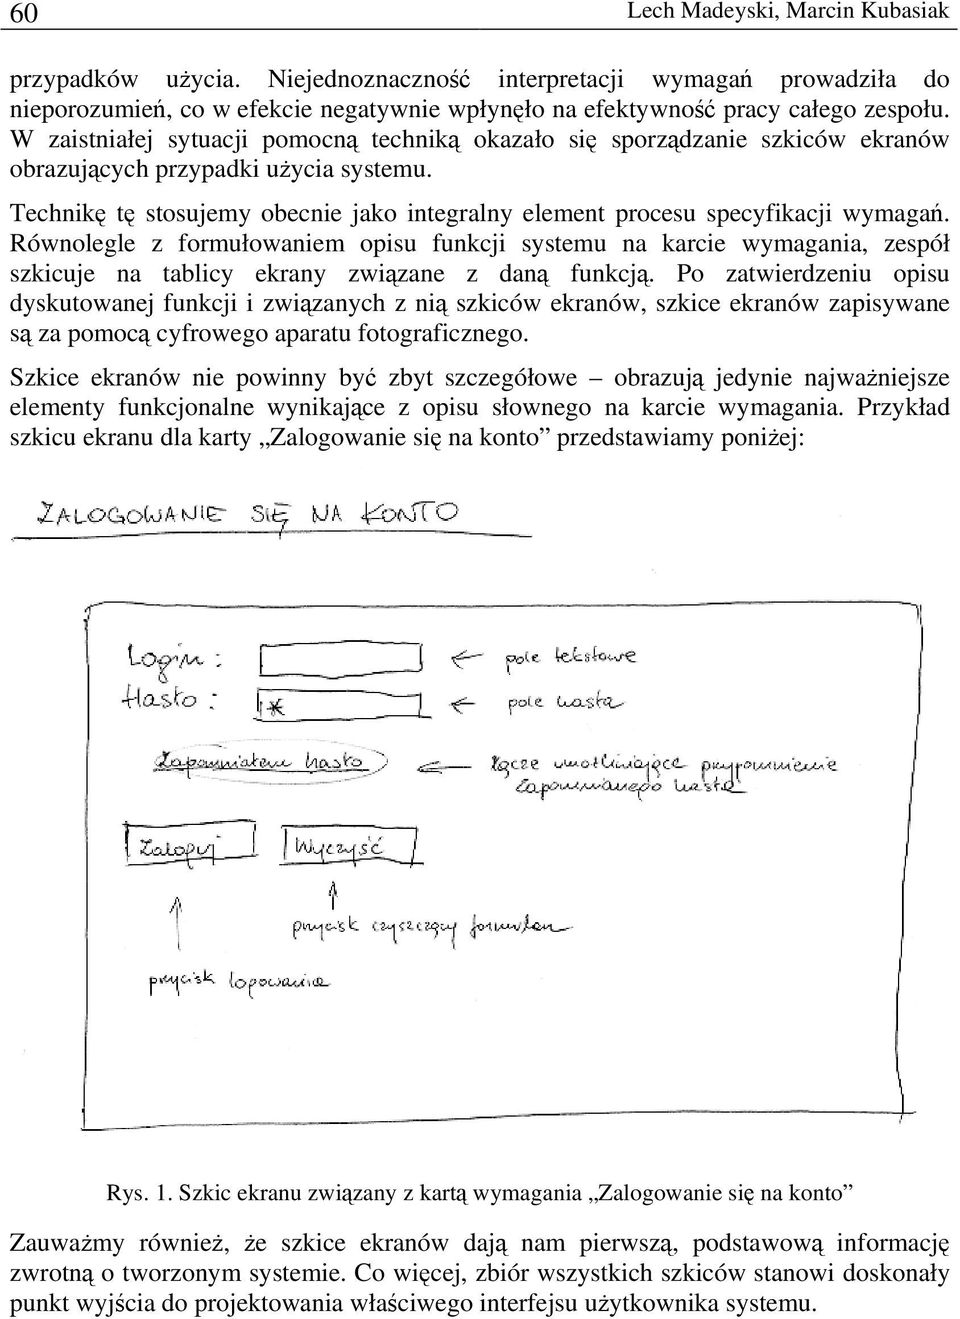 60 Lech Madeyski, Marcin Kubasiak
przypadków użycia. Niejednoznaczność interpretacji wymagań prowadziła do
nieporozumień, co w efekcie negatywnie wpłynęło na efektywność pracy całego zespołu.
W zaistniałej sytuacji pomocną techniką okazało się sporządzanie szkiców ekranów
obrazujących przypadki użycia systemu.
Technikę tę stosujemy obecnie jako integralny element procesu specyfikacji wymagań.
Równolegle z formułowaniem opisu funkcji systemu na karcie wymagania, zespół
szkicuje na tablicy ekrany związane z daną funkcją. Po zatwierdzeniu opisu
dyskutowanej funkcji i związanych z nią szkiców ekranów, szkice ekranów zapisywane
są za pomocą cyfrowego aparatu fotograficznego.
Szkice ekranów nie powinny być zbyt szczegółowe – obrazują jedynie najważniejsze
elementy funkcjonalne wynikające z opisu słownego na karcie wymagania. Przykład
szkicu ekranu dla karty „Zalogowanie się na konto” przedstawiamy poniżej:
ZALOGOWANIE SIĘ NA KONTO
Login: ← pole tekstowe
Hasło: * ← pole hasła
Zapomniałem hasło ← łącze umożliwiające przypomnienie
zapomnianego hasła
Zaloguj Wyczyść
przycisk czyszczący formularz
przycisk logowania
Rys. 1. Szkic ekranu związany z kartą wymagania „Zalogowanie się na konto”
Zauważmy również, że szkice ekranów dają nam pierwszą, podstawową informację
zwrotną o tworzonym systemie. Co więcej, zbiór wszystkich szkiców stanowi doskonały
punkt wyjścia do projektowania właściwego interfejsu użytkownika systemu.